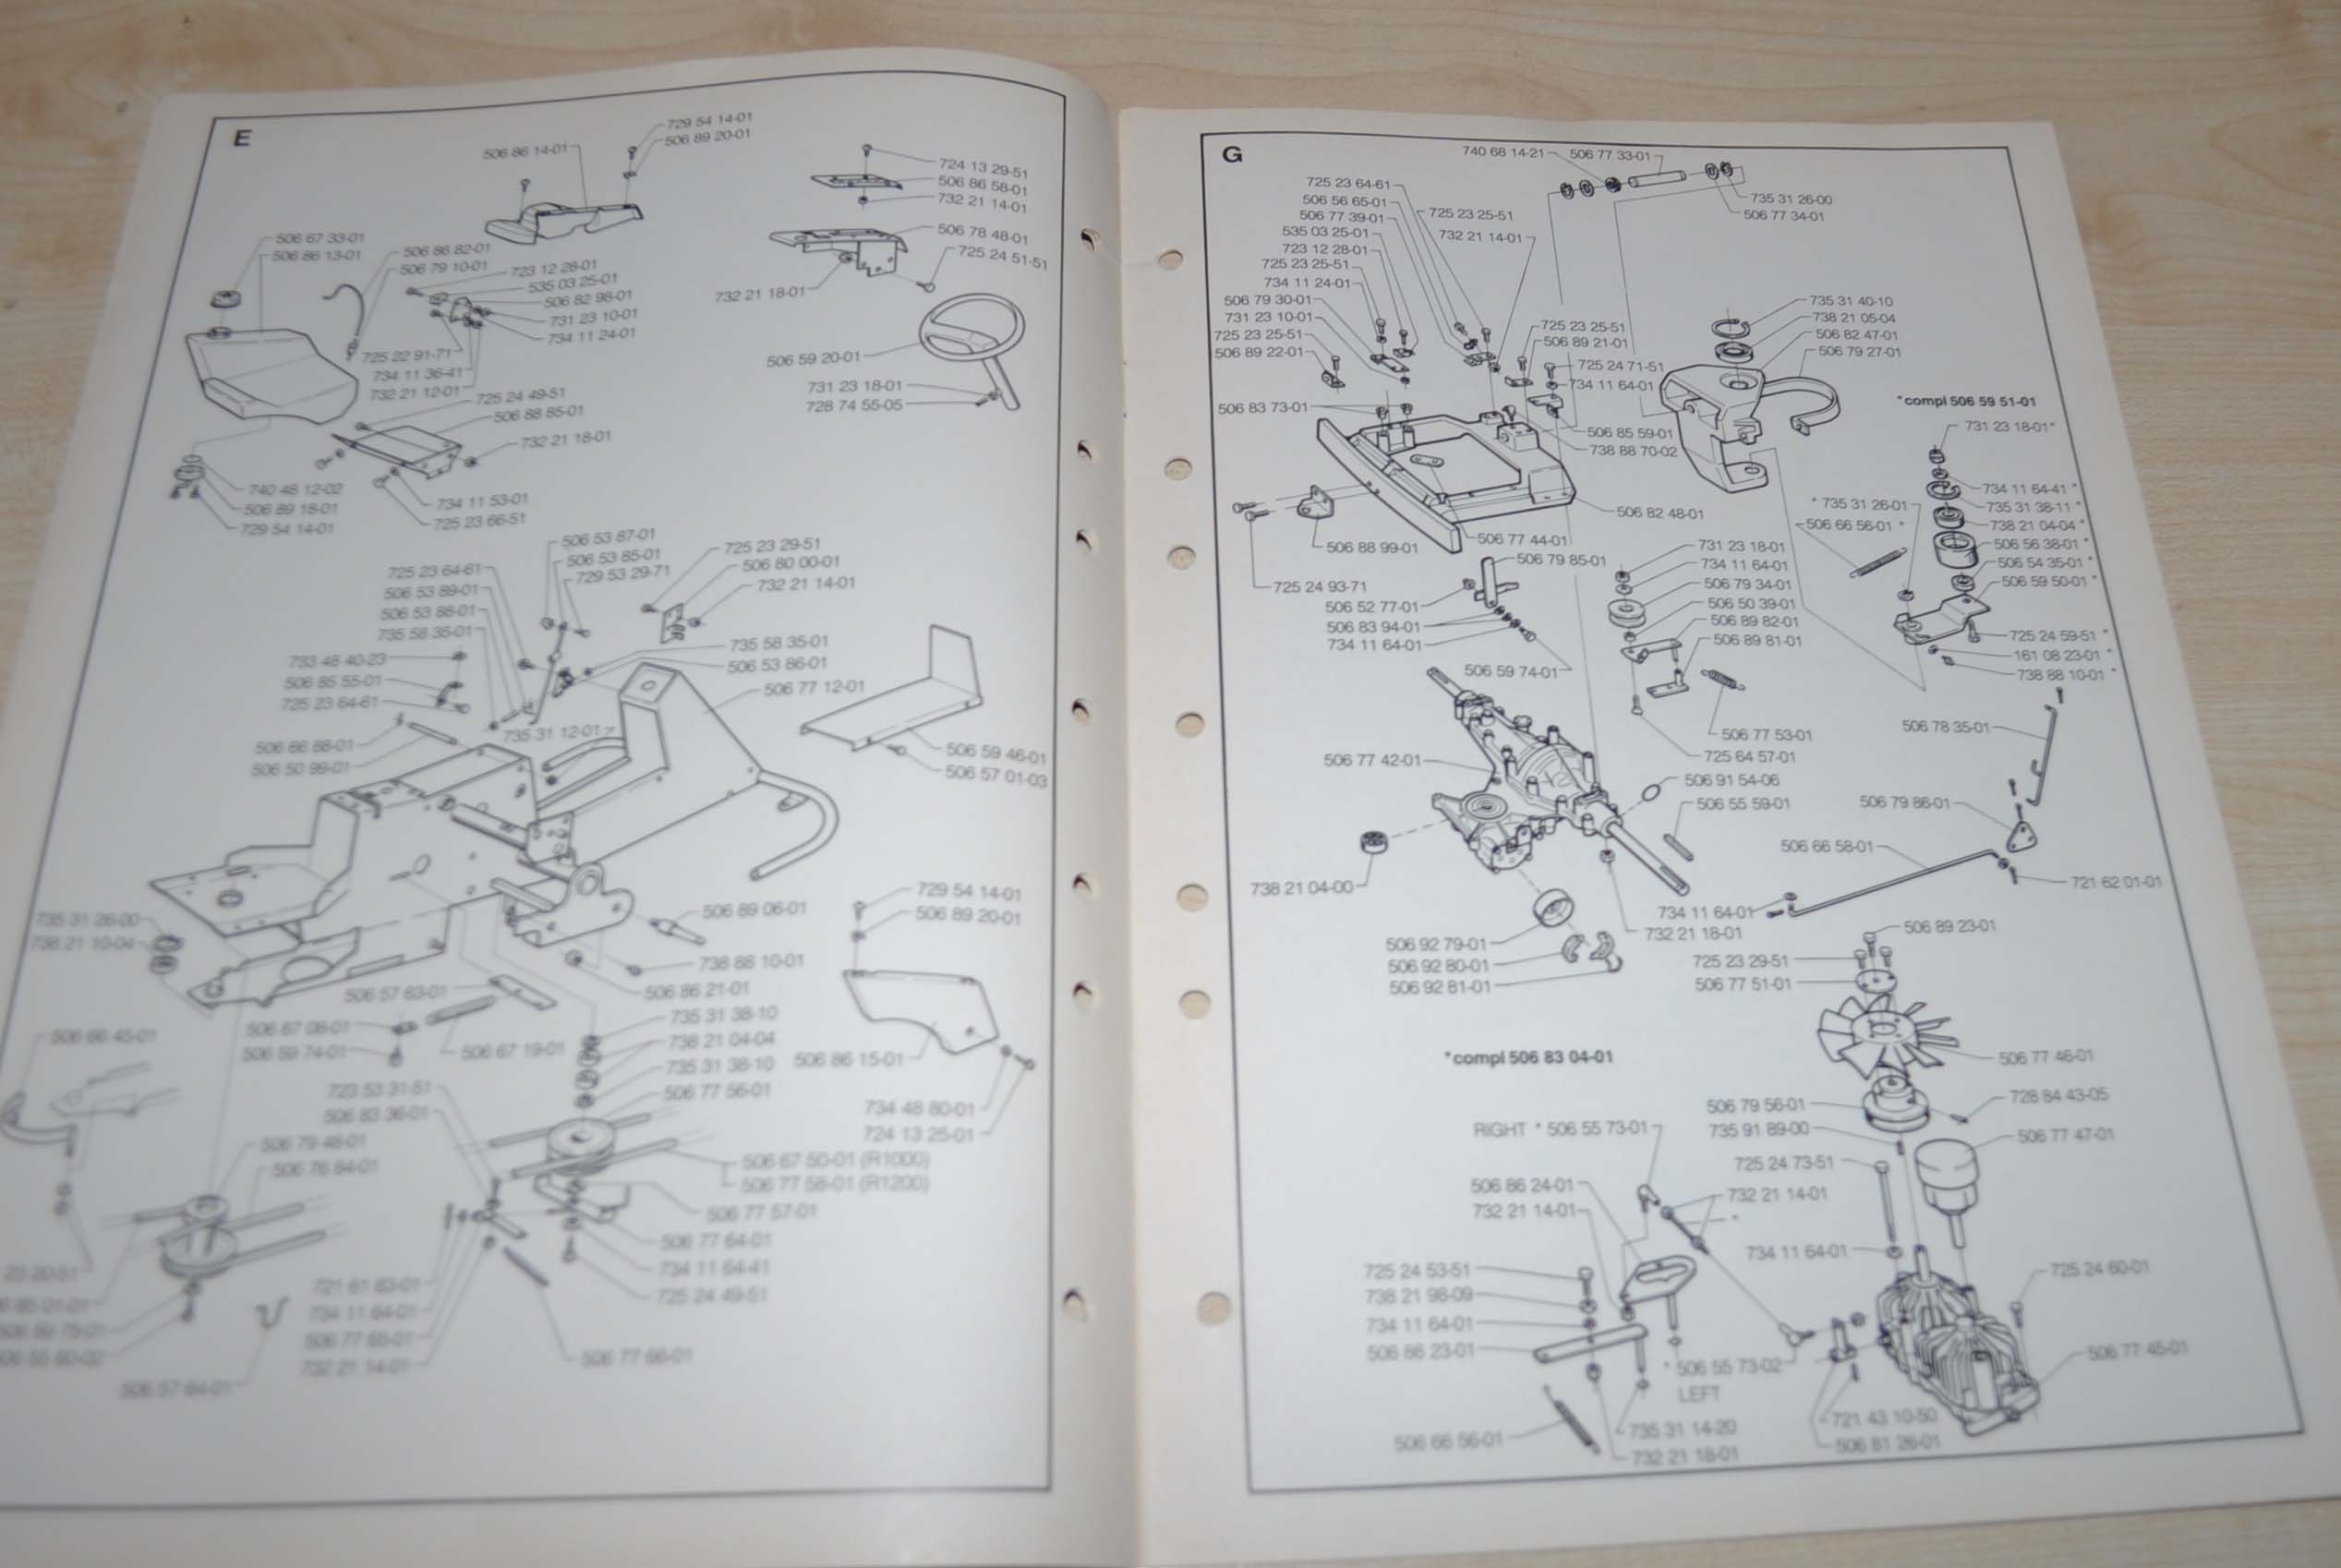 E
729 54 14-01
506 86 14-01
506 89 20-01
724 13 29-51
506 86 58-01
732 21 14-01
506 78 48-01
725 24 51-51
732 21 18-01
506 67 33-01
506 86 13-01
506 86 82-01
506 79 10-01
723 12 28-01
535 03 25-01
506 82 98-01
731 23 10-01
734 11 24-01
725 22 91-71
734 11 36-41
732 21 12-01
506 59 20-01
731 23 18-01
728 74 55-05
725 24 49-51
506 88 85-01
732 21 18-01
740 48 12-02
506 89 18-01
729 54 14-01
734 11 53-01
725 23 66-51
506 53 87-01
506 53 85-01
729 53 29-71
725 23 29-51
506 80 00-01
732 21 14-01
725 23 64-61
506 53 89-01
506 53 88-01
735 58 35-01
733 48 40-23
506 85 55-01
725 23 64-61
735 58 35-01
506 53 86-01
506 77 12-01
735 31 12-01
506 66 88-01
506 50 99-01
506 59 46-01
506 57 01-03
729 54 14-01
506 89 20-01
735 31 26-00
738 21 10-04
506 89 06-01
738 88 10-01
506 86 21-01
506 57 63-01
506 67 06-01
506 59 74-01
506 67 19-01
506 66 45-01
735 31 38-10
738 21 04-04
735 31 38-10
506 77 56-01
506 86 15-01
734 48 80-01
724 13 25-01
723 53 31-51
506 83 36-01
506 79 48-01
506 76 84-01
506 67 50-01 (R1000)
506 77 58-01 (R1200)
506 77 57-01
506 77 64-01
734 11 64-41
725 24 49-51
721 61 83-01
734 11 64-01
506 77 65-01
732 21 14-01
506 77 66-01
506 57 84-01
G
740 68 14-21
506 77 33-01
735 31 26-00
506 77 34-01
725 23 64-61
506 56 65-01
506 77 39-01
535 03 25-01
723 12 28-01
725 23 25-51
734 11 24-01
506 79 30-01
731 23 10-01
725 23 25-51
506 89 22-01
725 23 25-51
732 21 14-01
725 23 25-51
506 89 21-01
725 24 71-51
734 11 64-01
506 83 73-01
506 85 59-01
738 88 70-02
735 31 40-10
738 21 05-04
506 82 47-01
506 79 27-01
*compl 506 59 51-01
731 23 18-01*
734 11 64-41 *
735 31 38-11 *
738 21 04-04 *
506 56 38-01 *
506 54 35-01 *
506 59 50-01 *
* 735 31 26-01
506 66 56-01 *
725 24 59-51 *
161 08 23-01 *
738 88 10-01 *
506 82 48-01
506 88 99-01
506 77 44-01
725 24 93-71
506 79 85-01
506 52 77-01
506 83 94-01
734 11 64-01
506 59 74-01
731 23 18-01
734 11 64-01
506 79 34-01
506 50 39-01
506 89 82-01
506 89 81-01
506 77 53-01
725 64 57-01
506 78 35-01
506 77 42-01
506 91 54-06
506 55 59-01
506 79 86-01
506 66 58-01
721 62 01-01
738 21 04-00
734 11 64-01
732 21 18-01
506 92 79-01
506 92 80-01
506 92 81-01
506 89 23-01
725 23 29-51
506 77 51-01
506 77 46-01
*compl 506 83 04-01
506 79 56-01
735 91 89-00
728 84 43-05
506 77 47-01
RIGHT * 506 55 73-01
725 24 73-51
506 86 24-01
732 21 14-01
732 21 14-01
*
734 11 64-01
725 24 53-51
738 21 98-09
734 11 64-01
506 86 23-01
725 24 60-01
* 506 55 73-02
LEFT
506 77 45-01
506 66 56-01
735 31 14-20
732 21 18-01
721 43 10-50
506 81 26-01